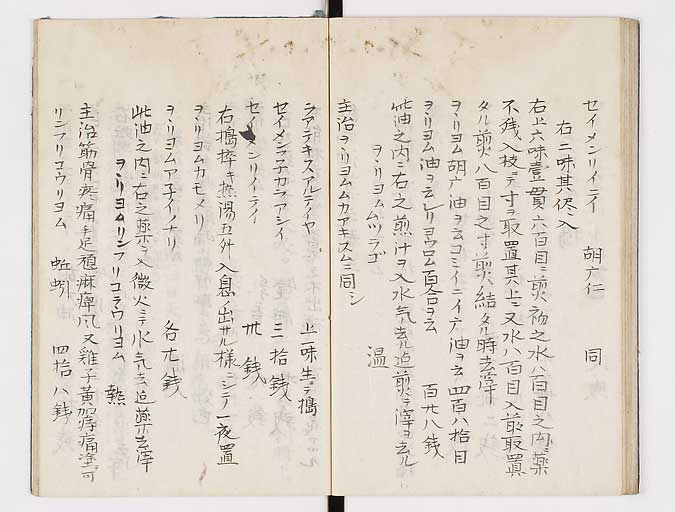 セイメンリイニイ 胡广仁 同
右二味其侭入
右上六味壹貫六百目ニ煎初之水八百目之内ニ薬
不残入枝ニテ寸ヲ取置其上ニ又水八百目入最取置
タル煎八百目之寸煎結タル時去滓
ヲヽリヨム胡广油ヲ云コミイニイ广油ヲ云 四百八拾目
ヲヽリヨム油ヲ云 百合ヲ云 百廾八銭
此油之内ニ右之煎汁ヲ入水気去ル迄煎テ滓ヲ去ル
ヲヽリヨムムツラゴ 温
主治ヲヽリヨムムカアキスムニ同シ
シアテキスアルテイヤ 上一味生ニテ搗
セイメン 二拾銭
セイメンリイニイ 卅銭
右搗粹キ熱湯五外入息ノ出サル様ニシテ一夜置
ヲヽリヨムカモメリ
ヲヽリヨムア子イノナリ 各廾銭
此油之内ニ右之薬ヲ入微火ニテ水気去迄薬去滓
ヲヽリヨムリンフリコラウリヨム 熱
主治筋骨疼痛手足麻痺風又雞子黄加痔痛塗可
リンフリコウリヨム 蚯蚓 四拾八銭